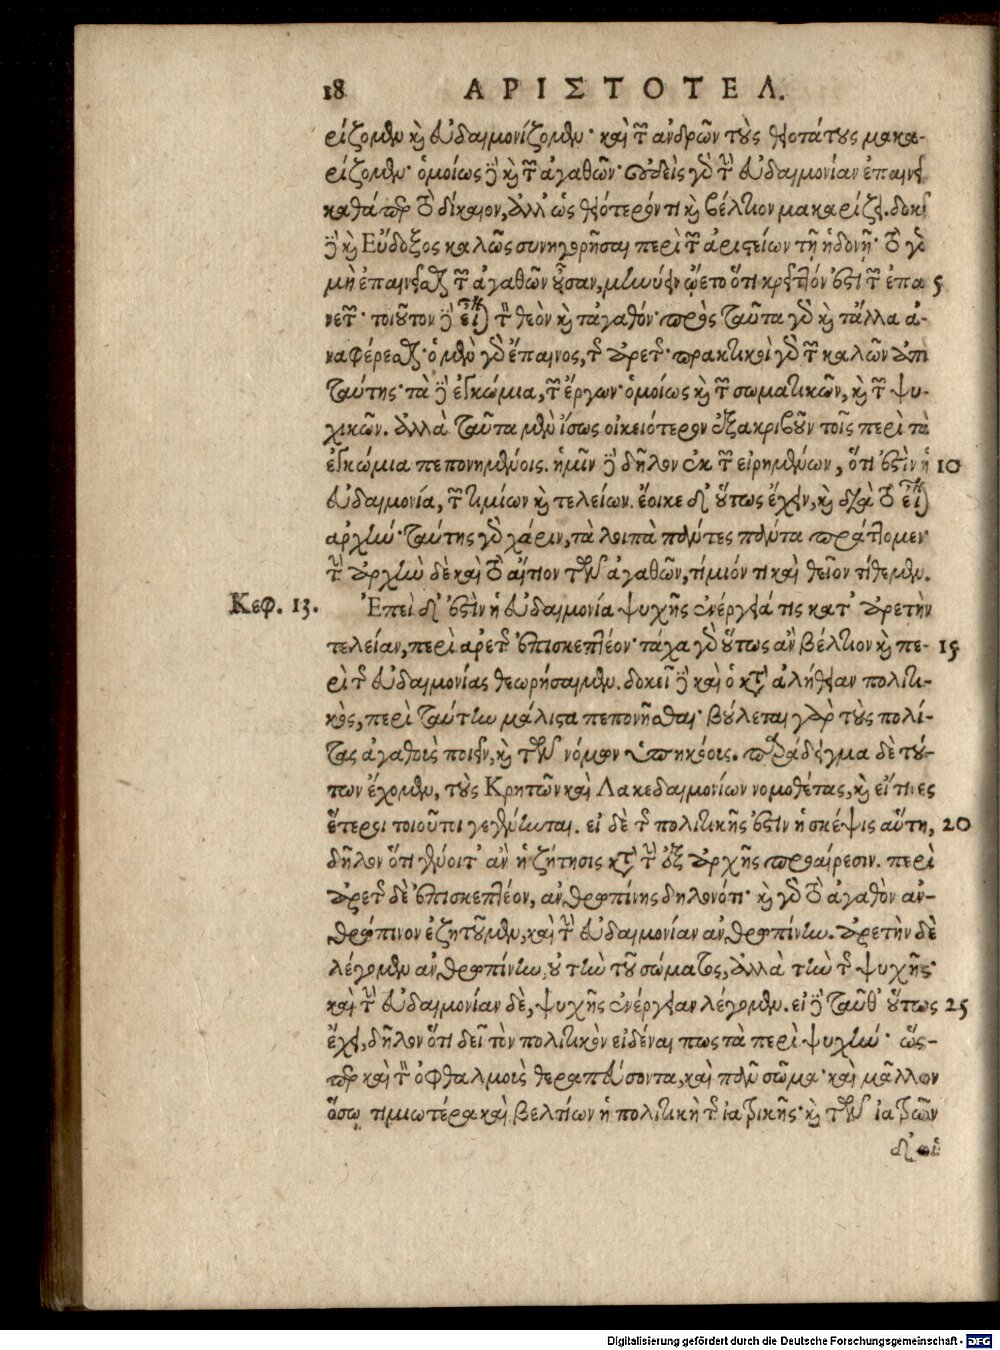 18 ΑΡΙΣΤΟΤΕΛ.
ρίζομεν καὶ εὐδαιμονίζομεν· καὶ τῶν ἀνδρῶν τοὺς θειοτάτους μακα-
ρίζομεν· ὁμοίως δὲ καὶ τῶν ἀγαθῶν· οὐδεὶς γὰρ τὴν εὐδαιμονίαν ἐπαινεῖ
καθάπερ τὸ δίκαιον, ἀλλ' ὡς θειότερόν τι καὶ βέλτιον μακαρίζει. δοκεῖ
δὲ καὶ Εὔδοξος καλῶς συνηγορῆσαι περὶ τῶν ἀριστείων τῇ ἡδονῇ· τὸ γὰρ
μὴ ἐπαινεῖσθαι τῶν ἀγαθῶν οὖσαν, μηνύειν ᾤετο ὅτι κρεῖττόν ἐστι τῶν ἐπαι- 5
νετῶν· τοιοῦτον δὲ εἶναι τὸν θεὸν καὶ τἀγαθόν· πρὸς ταῦτα γὰρ καὶ τἄλλα ἀ-
ναφέρεσθαι· ὁ μὲν γὰρ ἔπαινος, τῆς ἀρετῆς· πρακτικοὶ γὰρ τῶν καλῶν ἀπὸ
ταύτης· τὰ δὲ ἐγκώμια, τῶν ἔργων· ὁμοίως καὶ τῶν σωματικῶν, καὶ τῶν ψυ-
χικῶν. ἀλλὰ ταῦτα μὲν ἴσως οἰκειότερον ἐξακριβοῦν τοῖς περὶ τὰ
ἐγκώμια πεπονημένοις. ἡμῖν δὲ δῆλον ἐκ τῶν εἰρημένων, ὅτι ἐστὶν ἡ 10
εὐδαιμονία, τῶν τιμίων καὶ τελείων. ἔοικε δ' οὕτως ἔχειν, καὶ διὰ τὸ εἶναι
ἀρχήν· ταύτης γὰρ χάριν, τὰ λοιπὰ πάντες πάντα πράττομεν·
τὴν ἀρχὴν δὲ καὶ τὸ αἴτιον τῶν ἀγαθῶν, τίμιόν τι καὶ θεῖον τίθεμεν.
Κεφ. 13. Ἐπεὶ δ' ἐστὶν ἡ εὐδαιμονία ψυχῆς ἐνέργειά τις κατ' ἀρετὴν
τελείαν, περὶ ἀρετῆς ἐπισκεπτέον· τάχα γὰρ οὕτως ἂν βέλτιον καὶ πε- 15
ρὶ τῆς εὐδαιμονίας θεωρήσαιμεν. δοκεῖ δὲ καὶ ὁ κατ' ἀλήθειαν πολιτι-
κὸς, περὶ ταύτην μάλιστα πεπονῆσθαι· βούλεται γὰρ τοὺς πολί-
τας ἀγαθοὺς ποιεῖν, καὶ τῶν νόμων ὑπηκόους. παράδειγμα δὲ τού-
των ἔχομεν, τοὺς Κρητῶν καὶ Λακεδαιμονίων νομοθέτας, καὶ εἴ τινες
ἕτεροι τοιοῦτοι γεγένηνται. εἰ δὲ τῆς πολιτικῆς ἐστὶν ἡ σκέψις αὕτη, 20
δῆλον ὅτι γένοιτ' ἂν ἡ ζήτησις κατὰ τὴν ἐξ ἀρχῆς προαίρεσιν. περὶ
ἀρετῆς δὲ ἐπισκεπτέον, ἀνθρωπίνης δηλονότι· καὶ γὰρ τὸ ἀγαθὸν ἀν-
θρώπινον ἐζητοῦμεν, καὶ τὴν εὐδαιμονίαν ἀνθρωπίνην. ἀρετὴν δὲ
λέγομεν ἀνθρωπίνην, οὐ τὴν τοῦ σώματος, ἀλλὰ τὴν τῆς ψυχῆς·
καὶ τὴν εὐδαιμονίαν δὲ, ψυχῆς ἐνέργειαν λέγομεν. εἰ δὲ ταῦθ' οὕτως 25
ἔχει, δῆλον ὅτι δεῖ τὸν πολιτικὸν εἰδέναι πως τὰ περὶ ψυχήν· ὥσ-
περ καὶ τὸν ὀφθαλμοὺς θεραπεύσοντα, καὶ πᾶν σῶμα· καὶ μᾶλλον
ὅσῳ τιμιωτέρα καὶ βελτίων ἡ πολιτικὴ τῆς ἰατρικῆς· καὶ τῶν ἰατρῶν
δ' οἱ
Digitalisierung gefördert durch die Deutsche Forschungsgemeinschaft - DFG